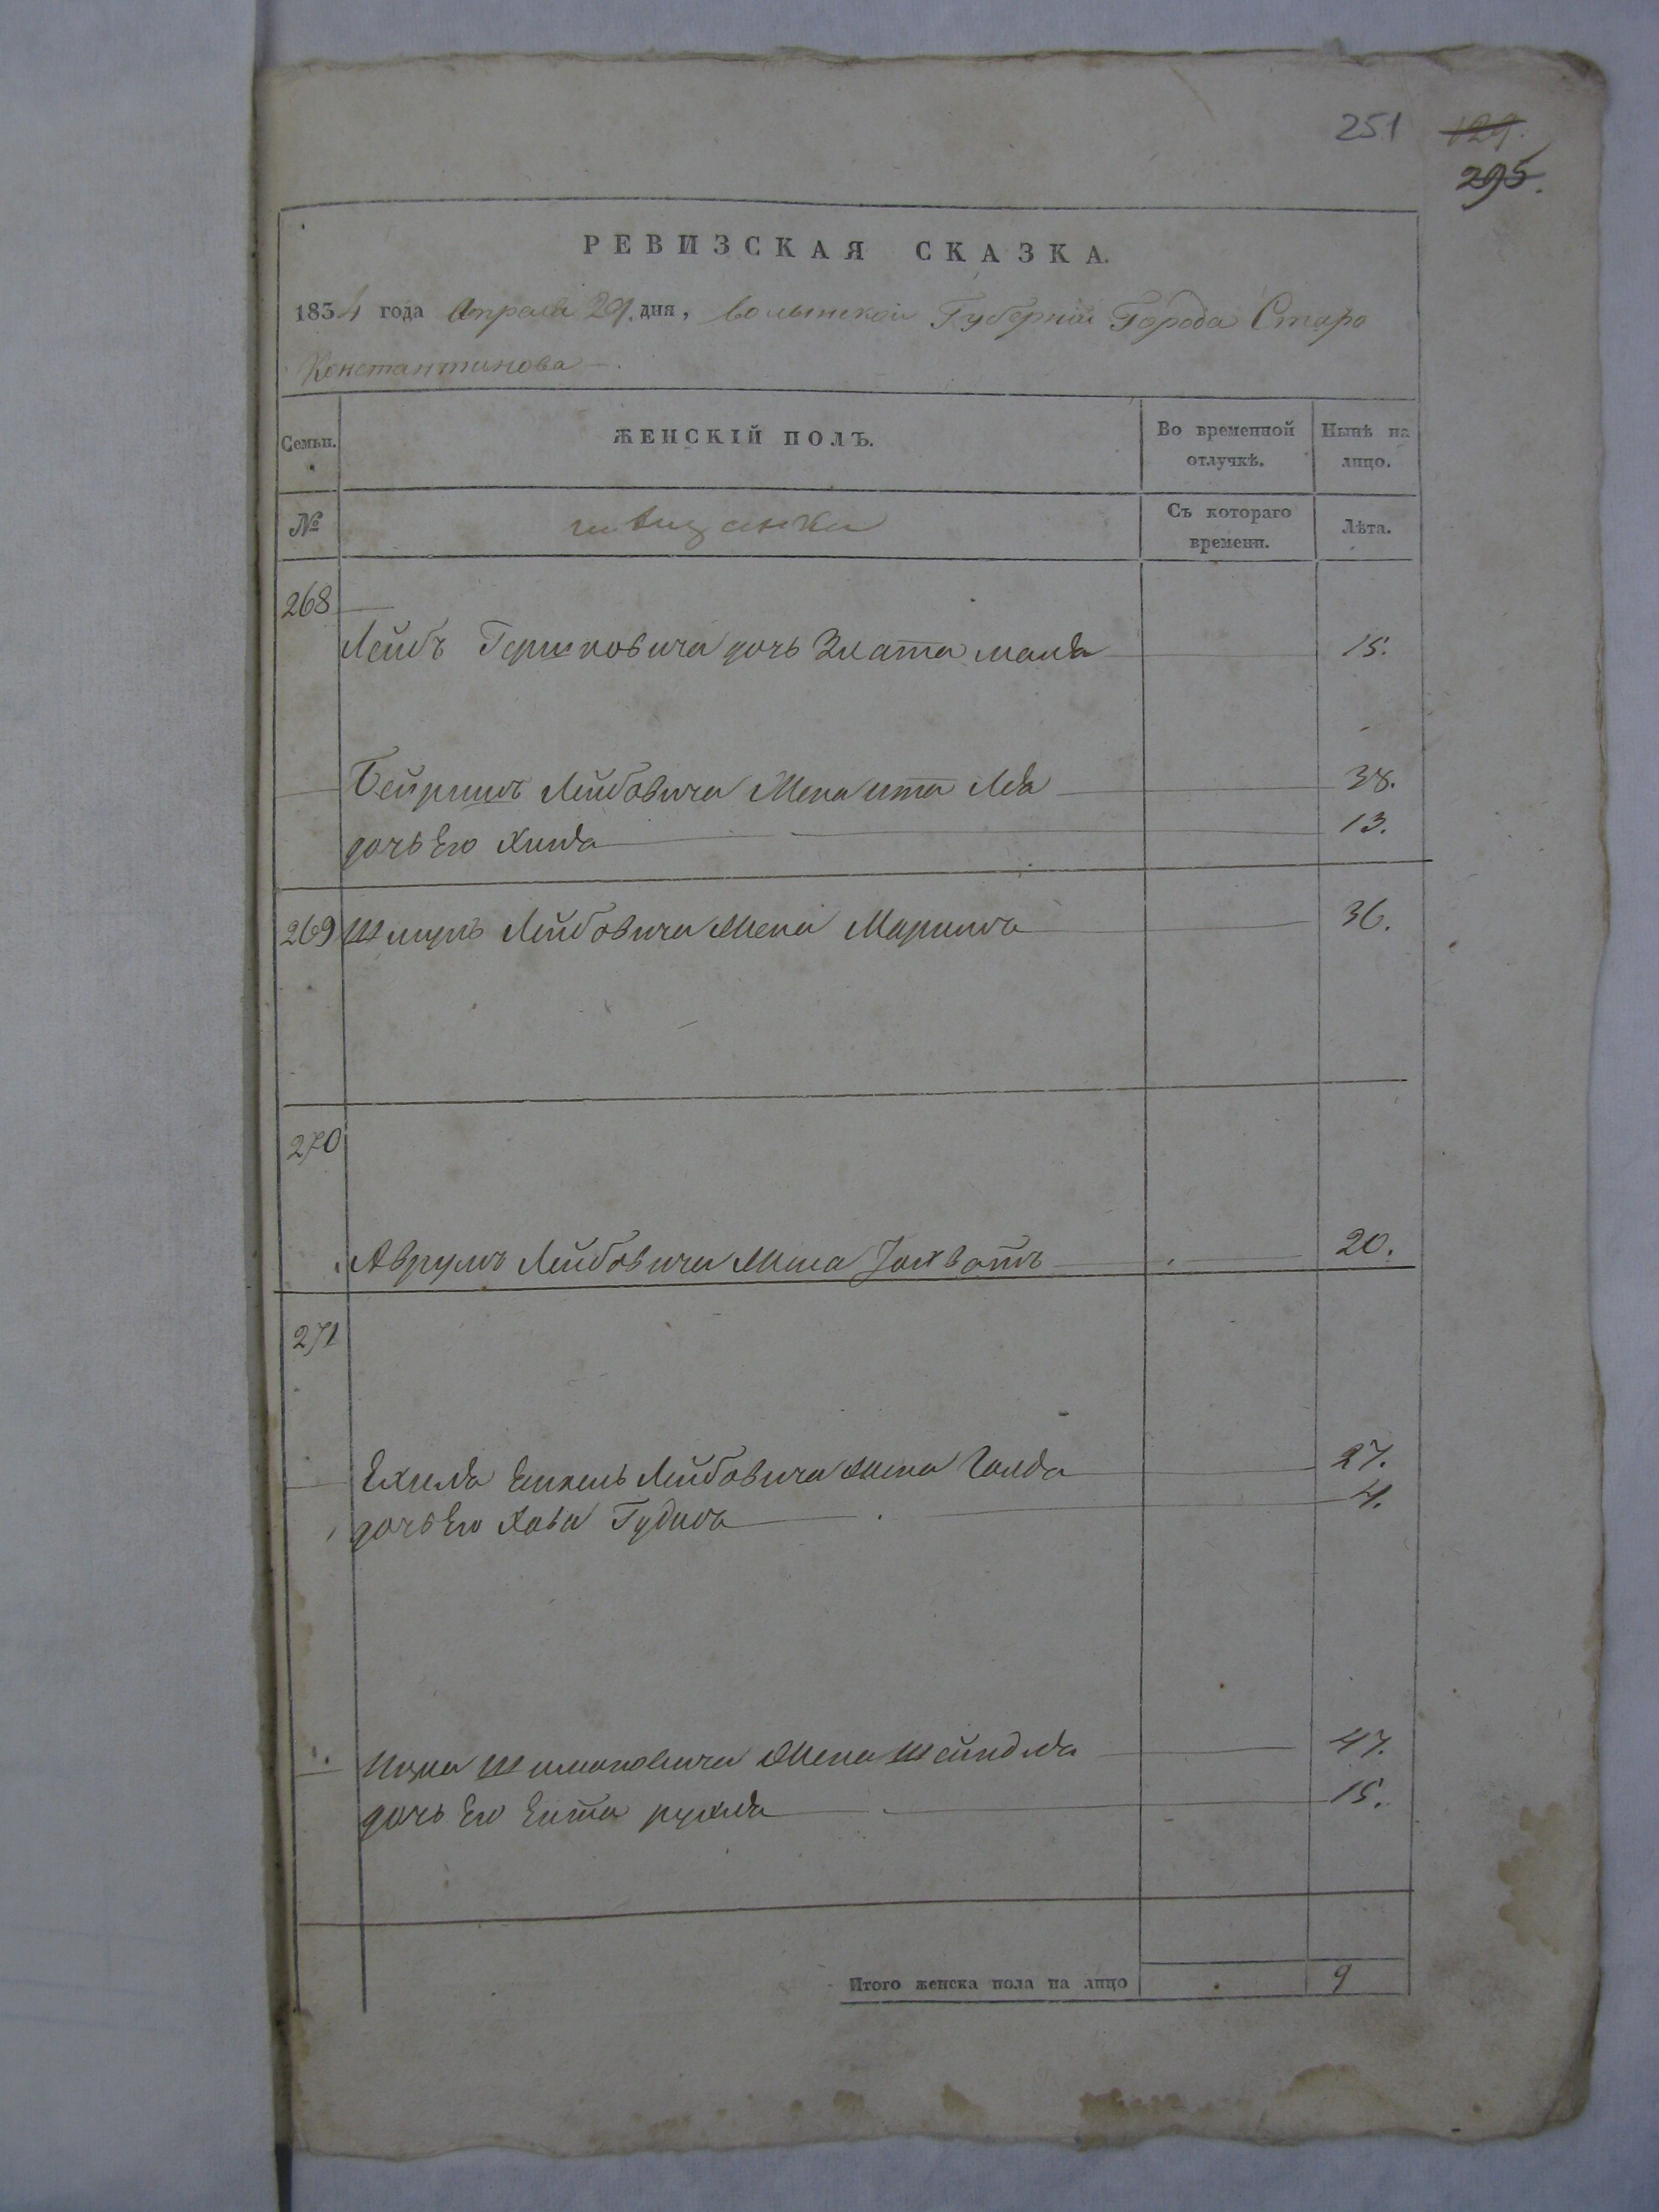 251 129.
295.
РЕВИЗСКАЯ СКАЗКА.
1834 года Апреля 29. дня, Волынской Губернии Города Старо
Константинова
Семьи. ЖЕНСКІЙ ПОЛЪ. Во временной отлучкѣ. Нынѣ на лицо.
№ мѣщанки Съ котораго времени. Лѣта.
268
Лейбъ Гершковича дочь Злата малка 15.
Лейбовича жена ита Лея 38.
дочь Его 13.
269 Шмуль Лейбовича жена 36.
270
Аврумъ Лейбовича жена 20.
271
Лейбовича жена Голда 27.
дочь Его Хава 4.
жена Шейндля 47.
дочь Его рухля 15.
Итого женска пола на лицо 9